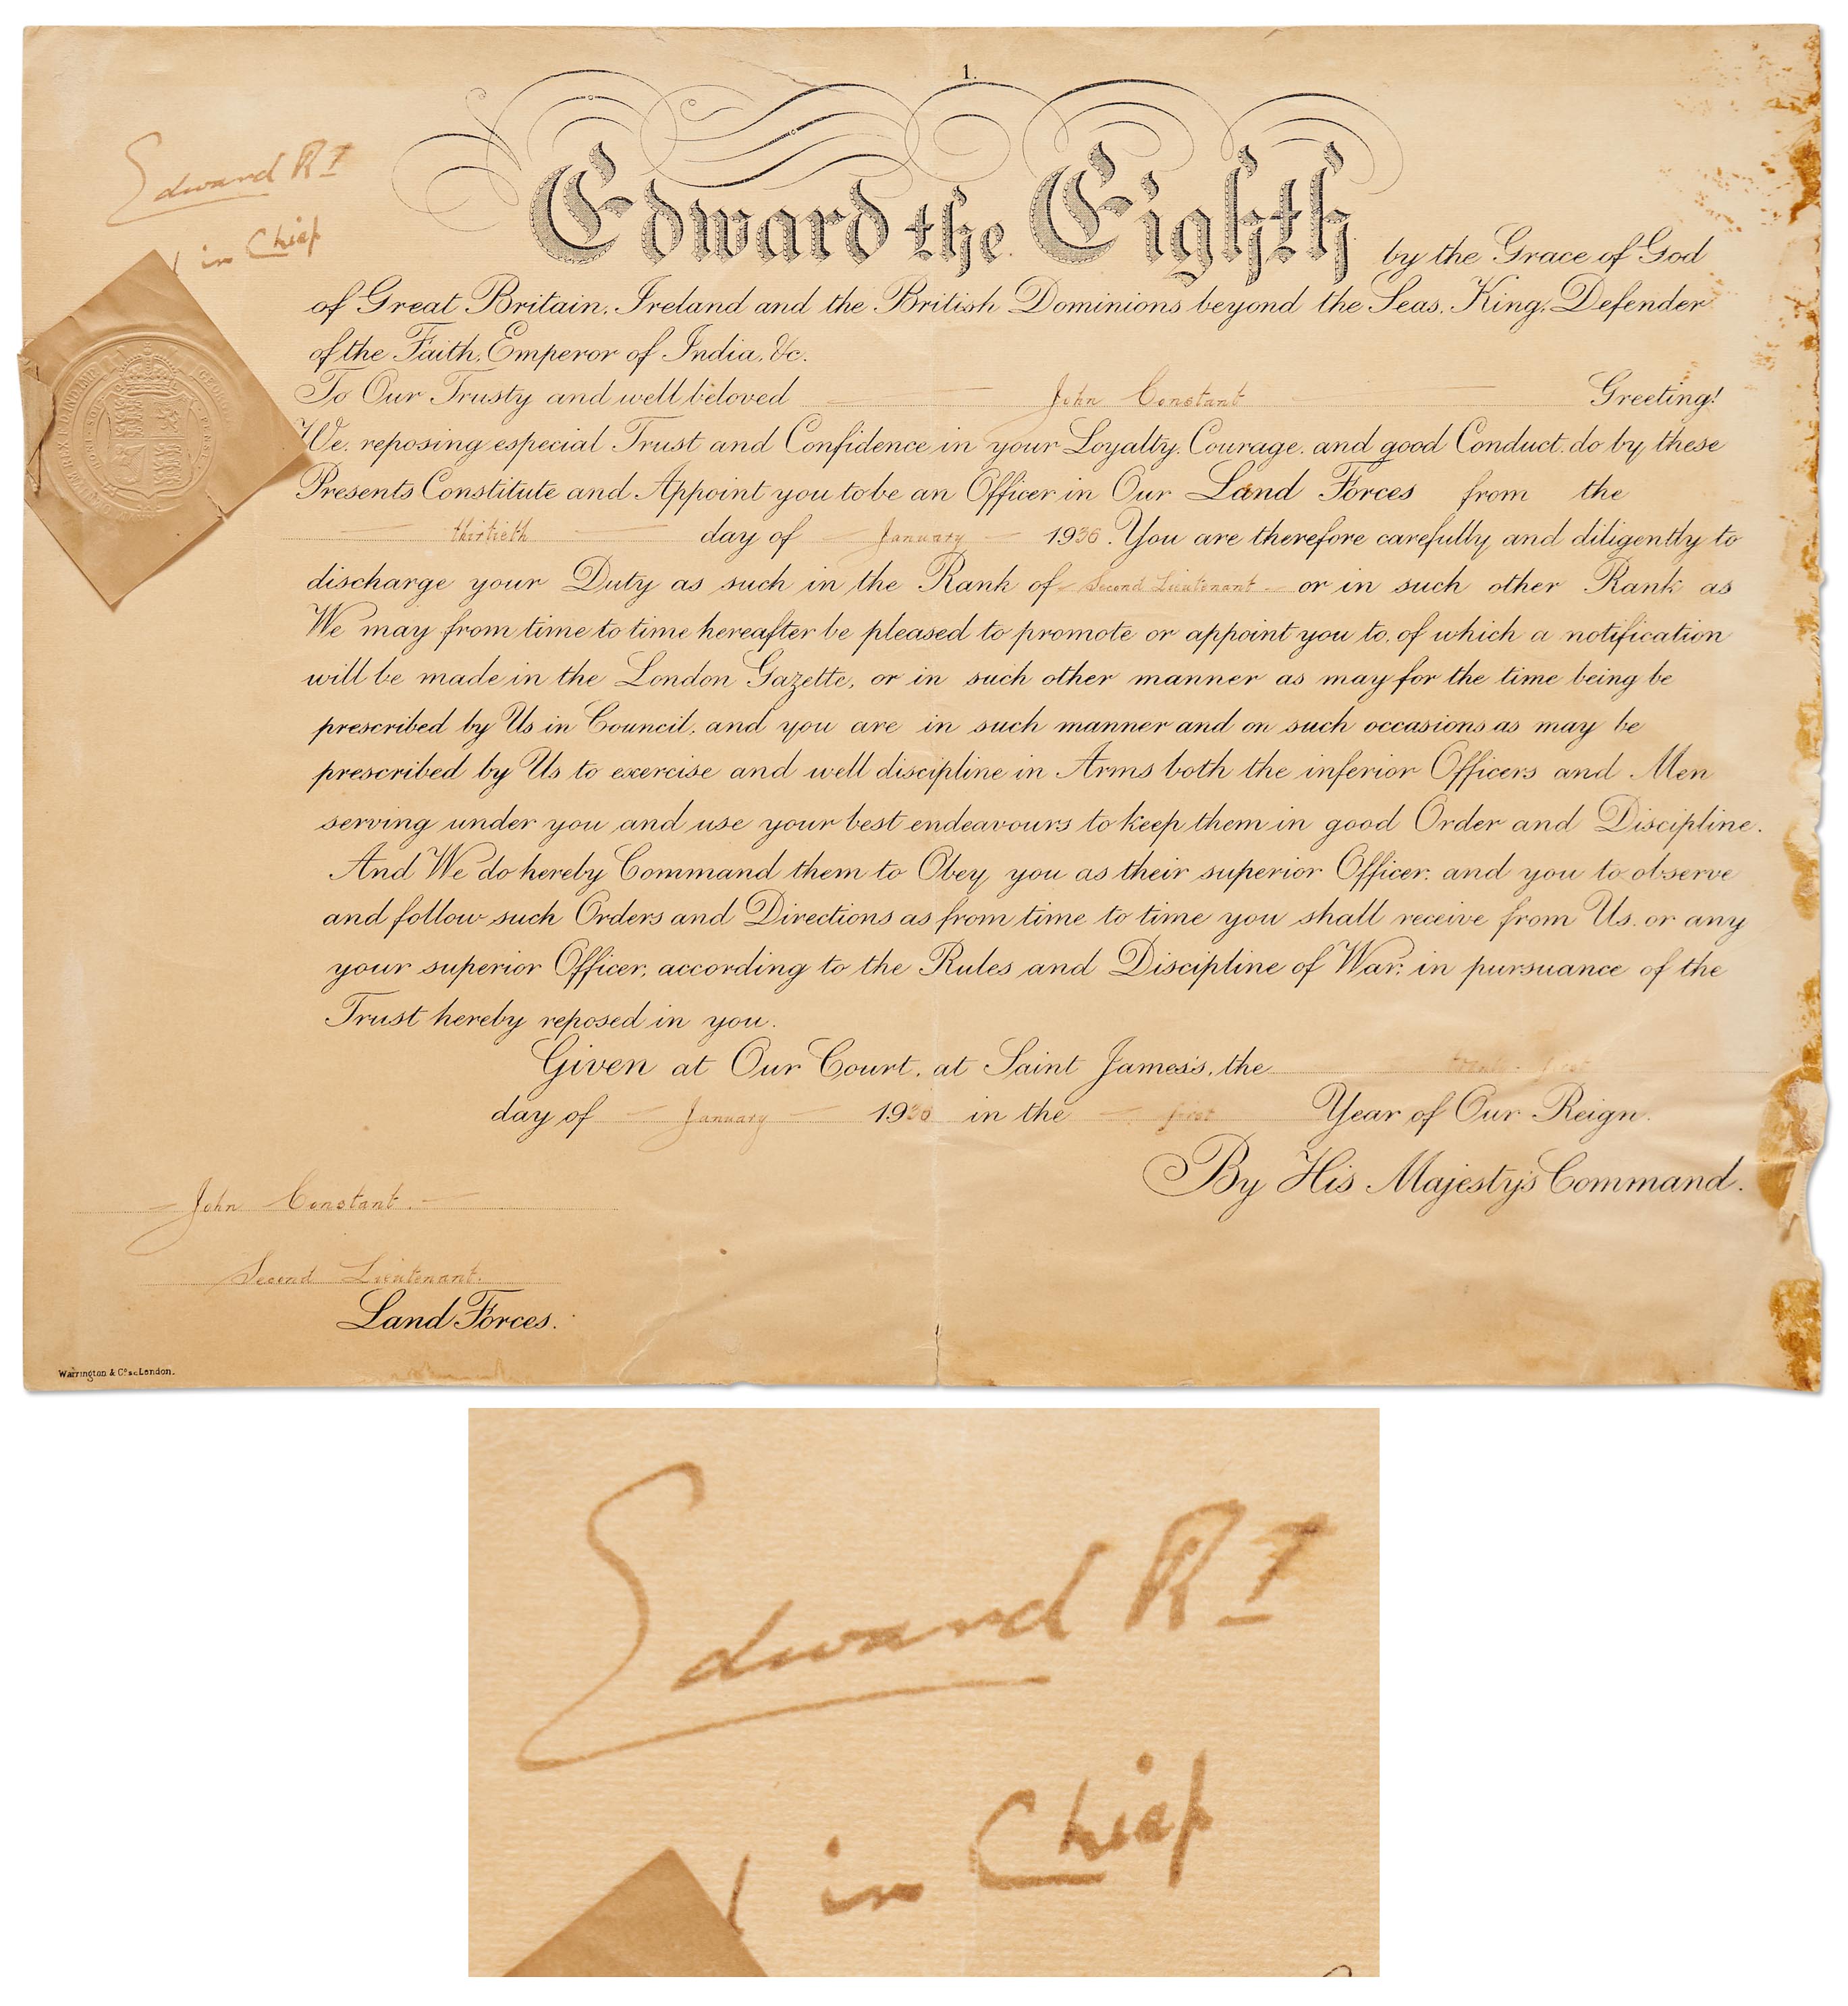 1.
Edward R I
in Chief
Edward the Eighth by the Grace of God
of Great Britain, Ireland and the British Dominions beyond the Seas, King, Defender
of the Faith, Emperor of India, &c.
To Our Trusty and well beloved John Constant Greeting!
We, reposing especial Trust and Confidence in your Loyalty, Courage, and good Conduct, do by these
Presents Constitute and Appoint you to be an Officer in Our Land Forces from the
thirtieth day of January 1936. You are therefore carefully and diligently to
discharge your Duty as such in the Rank of Second Lieutenant or in such other Rank as
We may from time to time hereafter be pleased to promote or appoint you to, of which a notification
will be made in the London Gazette, or in such other manner as may for the time being be
prescribed by Us in Council, and you are in such manner and on such occasions as may be
prescribed by Us to exercise and well discipline in Arms both the inferior Officers and Men
serving under you and use your best endeavours to keep them in good Order and Discipline.
And We do hereby Command them to Obey you as their superior Officer, and you to observe
and follow such Orders and Directions as from time to time you shall receive from Us, or any
your superior Officer, according to the Rules and Discipline of War, in pursuance of the
Trust hereby reposed in you.
Given at Our Court, at Saint James's, the first
day of January 1936 in the first Year of Our Reign.
By His Majesty's Command.
John Constant.
Second Lieutenant.
Land Forces.
Warrington & Co. sc. London.
Edward R I
in Chief